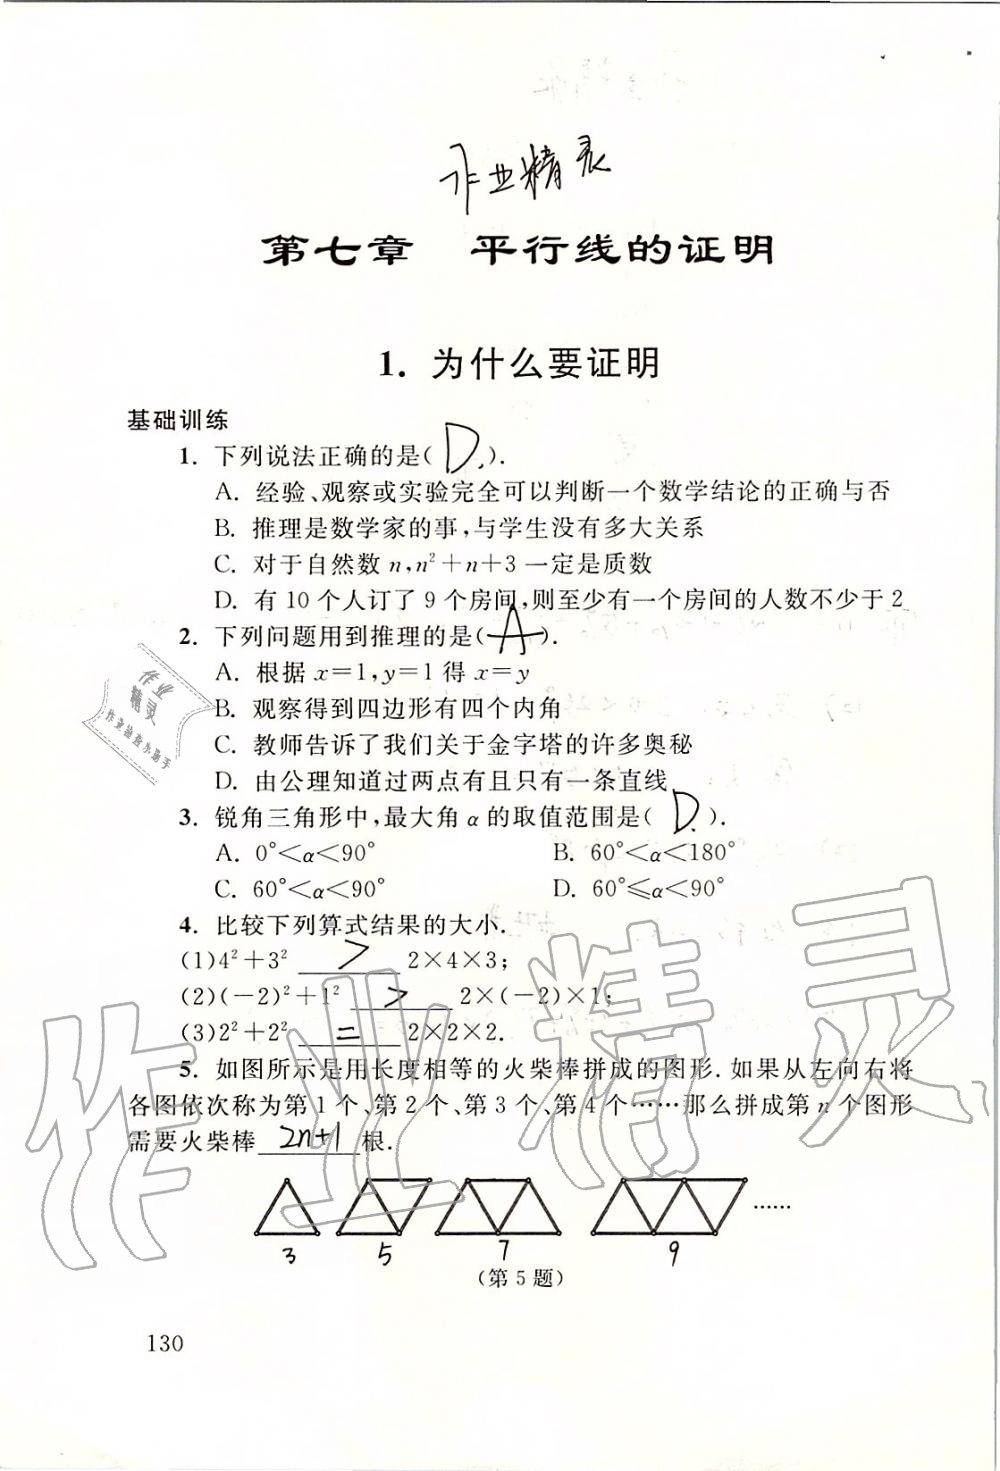 作业精灵
第七章 平行线的证明
1. 为什么要证明
基础训练
1. 下列说法正确的是( D ).
A. 经验、观察或实验完全可以判断一个数学结论的正确与否
B. 推理是数学家的事,与学生没有多大关系
C. 对于自然数 n,n²+n+3 一定是质数
D. 有 10 个人订了 9 个房间,则至少有一个房间的人数不少于 2
2. 下列问题用到推理的是( A ).
A. 根据 x=1,y=1 得 x=y
B. 观察得到四边形有四个内角
C. 教师告诉了我们关于金字塔的许多奥秘
D. 由公理知道过两点有且只有一条直线
3. 锐角三角形中,最大角 α 的取值范围是( D ).
A. 0°<α<90° B. 60°<α<180°
C. 60°<α<90° D. 60°≤α<90°
4. 比较下列算式结果的大小.
(1)4²+3² > 2×4×3;
(2)(-2)²+1² > 2×(-2)×1;
(3)2²+2² = 2×2×2.
5. 如图所示是用长度相等的火柴棒拼成的图形.如果从左向右将
各图依次称为第 1 个、第 2 个、第 3 个、第 4 个……那么拼成第 n 个图形
需要火柴棒 2n+1 根.
……
3 5 7 9
(第 5 题)
130
作业
精灵
作业的好小助手
作业精灵